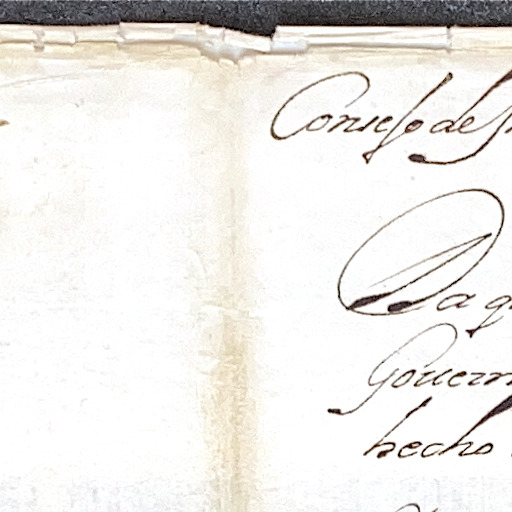 Consejo de
Da q
Gouern
hecho